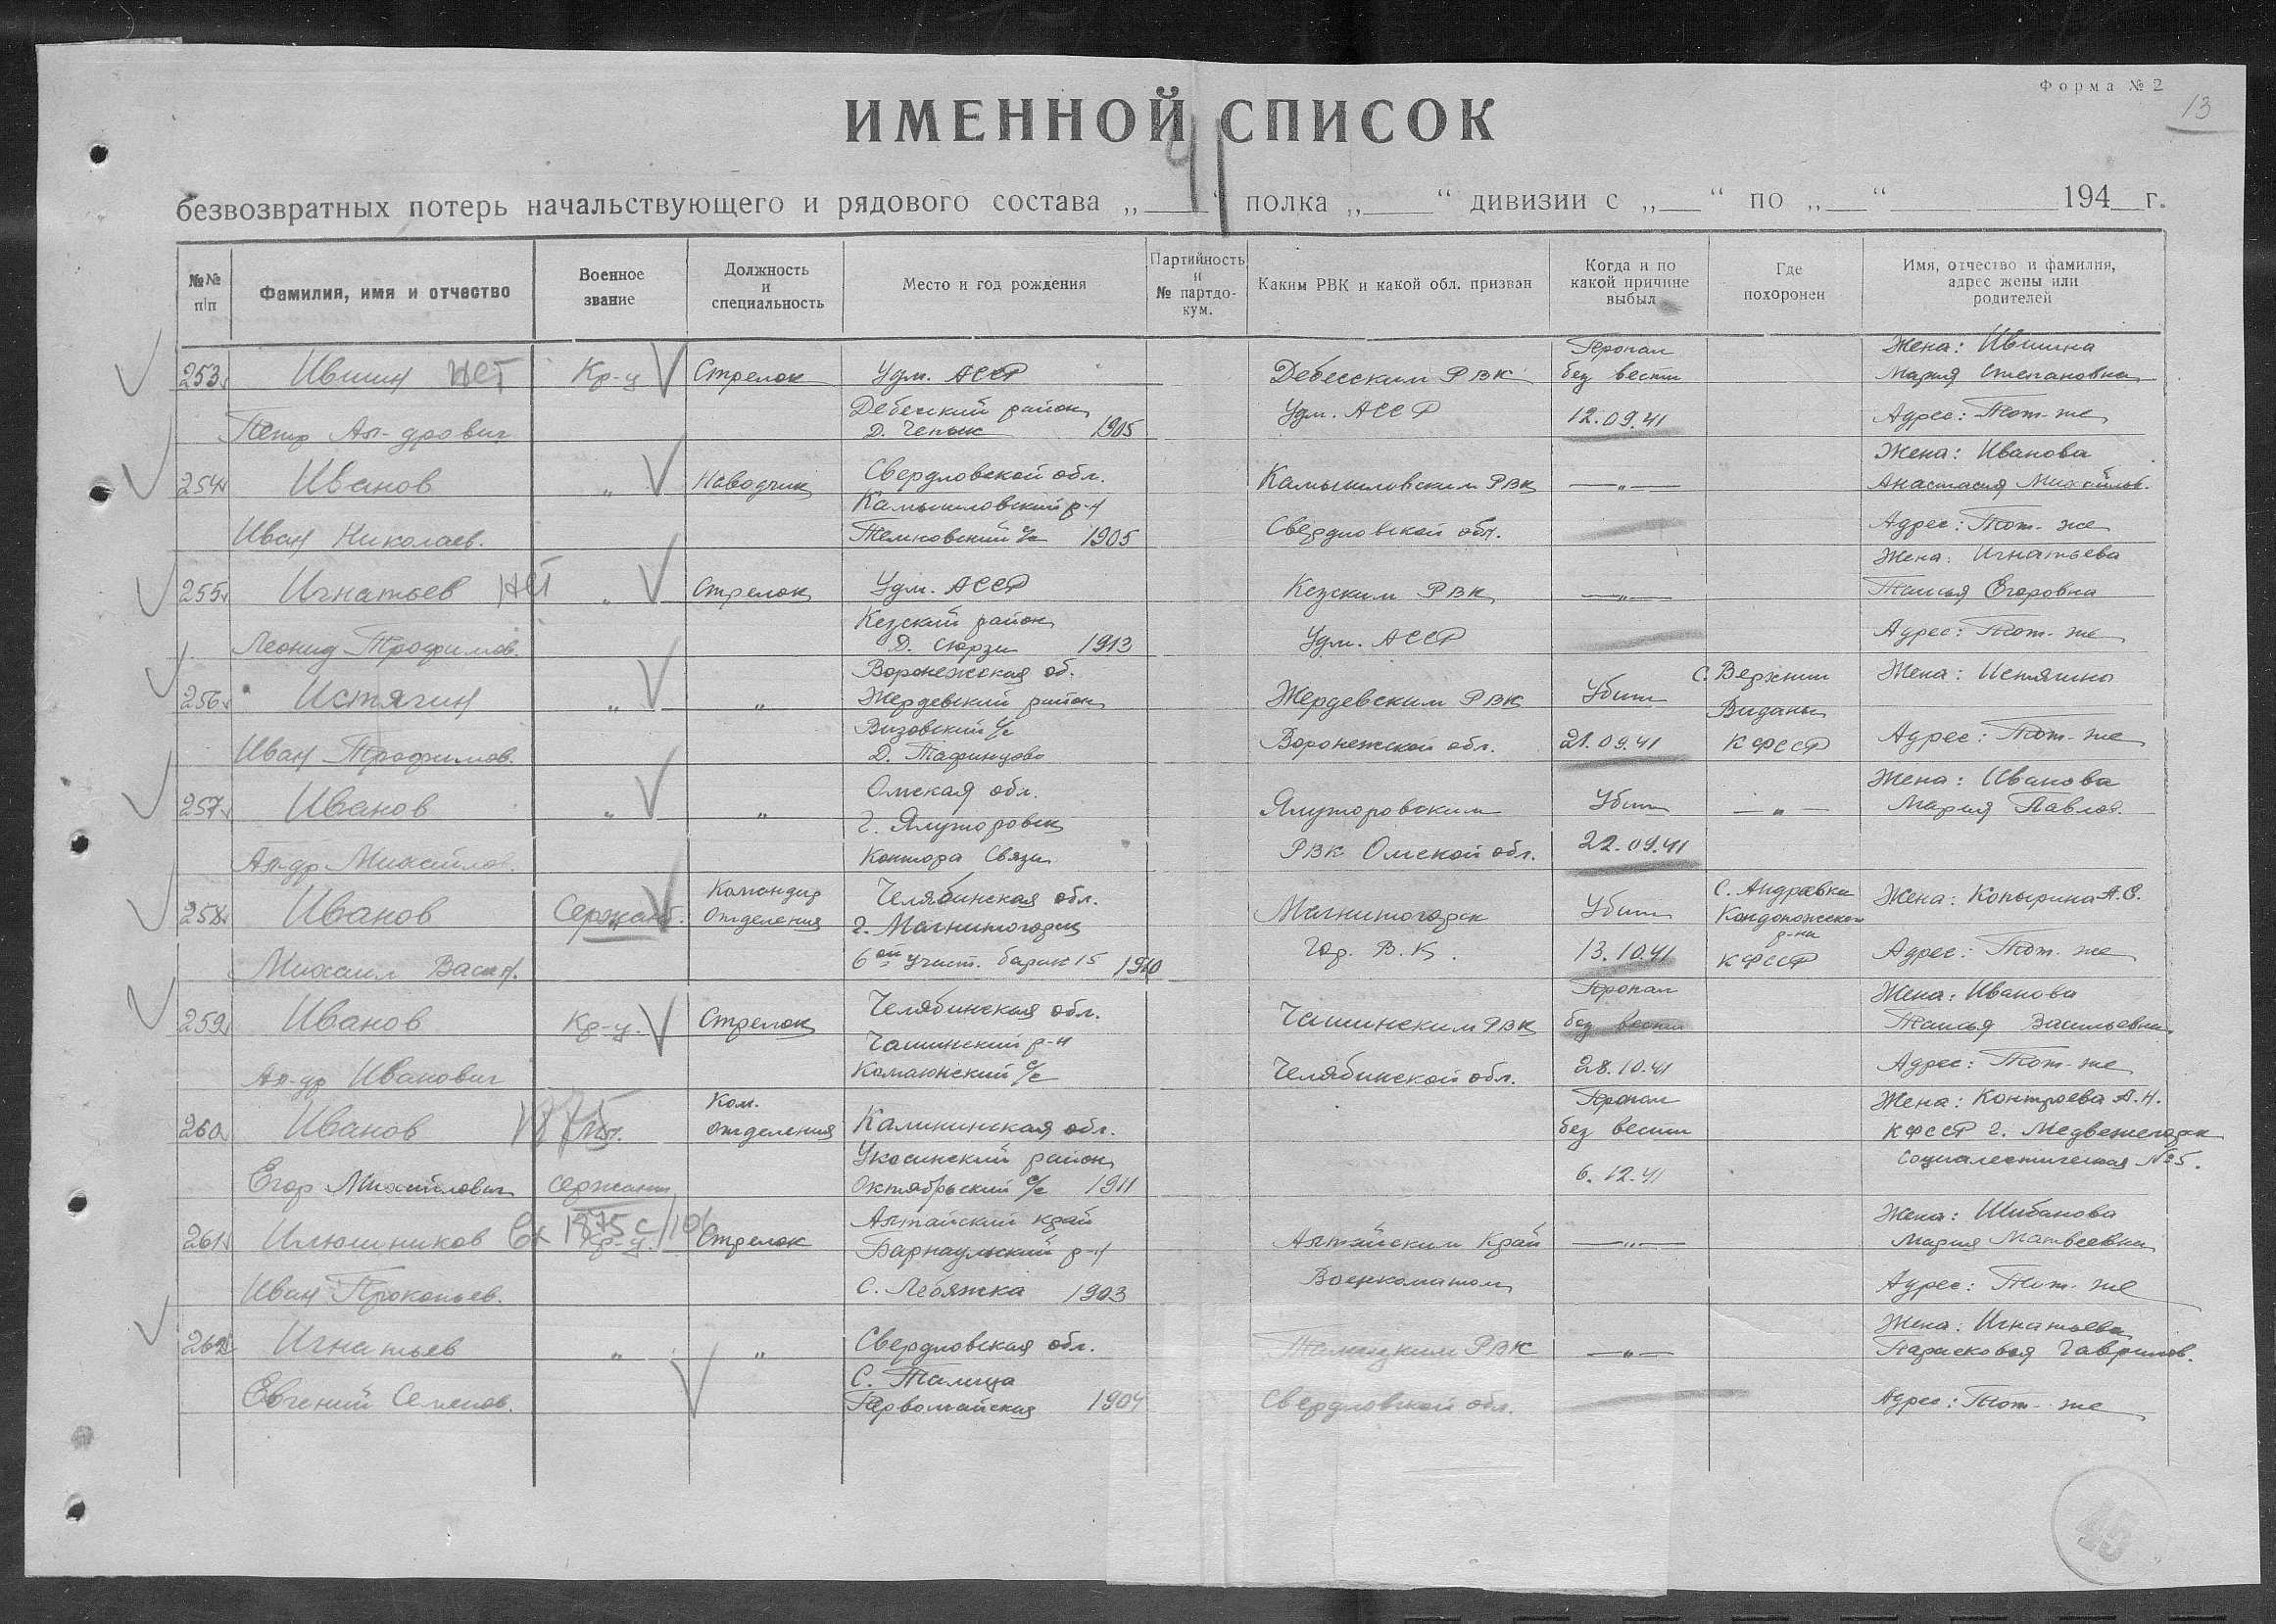 Форма № 2
13
ИМЕННОЙ СПИСОК
безвозвратных потерь начальствующего и рядового состава „ “ полка „ “ дивизии с „ “ по „ “ 194 г.
№№ п/п
Фамилия, имя и отчество
Военное звание
Должность и специальность
Место и год рождения
Партийность и № партдокум.
Каким РВК и какой обл. призван
Когда и по какой причине выбыл
Где похоронен
Имя, отчество и фамилия, адрес жены или родителей
253
Ившин нет
Петр Ал-дрович
Кр-ц
Стрелок
Удм. АССР
Дебесский район
Д. Чепык 1905
Дебесским РВК
Удм. АССР
Пропал
без вести
12.09.41
Жена: Ившина
Мария Степановна
Адрес: Тот-же
254
Иванов
Иван Николаев.
„
Наводчик
Свердловской обл.
Камышловский р-н
1905
Камышловским РВК
Свердловской обл.
—„—
Жена: Иванова
Анастасия Михайлов.
Адрес: Тот-же
255
Игнатьев нет
Леонид Трофимов.
„
Стрелок
Удм. АССР
Кезский район
Д. Сюрзи 1913
Кезским РВК
Удм. АССР
—„—
Жена: Игнатьева
Таисья Егоровна
Адрес: Тот-же
256
Истягин
Иван Трофимов.
„
„
Воронежская об.
Жердевский район
Д. Тафинцово
Жердевским РВК
Воронежской обл.
Убит
21.09.41
С. Верхнии
Виданы
КФССР
Жена: Истягино
Адрес: Тот-же
257
Иванов
Ал-др Михайлов.
„
„
Омская обл.
г. Ялуторовск
Контора Связи
Ялуторовским
РВК Омской обл.
Убит
22.09.41
—„—
Жена: Иванова
Мария Павлов.
258
Иванов
Михаил Васил.
Сержант.
Командир
Отделения
Челябинская обл.
г. Магнитогорск
6ой участ. барак 15 1910
Магнитогорск
Гор. В.К.
Убит
13.10.41
С. Андравка
Кондопожского
р-на
КФССР
Жена: Копырина А.С.
Адрес: Тот-же
259
Иванов
Ал-др Иванович
Кр-ц.
Стрелок
Челябинская обл.
Чашинский р-н
с/с
Чашинским РВК
Челябинской обл.
Пропал
без вести
28.10.41
Жена: Иванова
Таисья Васильевна
Адрес: Тот-же
260
Иванов
Егор Михайлович
сержант
Ком.
Отделения
Калининская обл.
район
Октябрьский с/с 1911
Пропал
без вести
6.12.41
Жена: А.Н.
КФССР г. Медвежегорск
Социалестическая №5.
261
Илюшников
Иван Прокопьев.
1875с/106
Кр-ц.
Стрелок
Алтайский край
Барнаульский р-н
С. Лебяжка 1903
Алтайским Край
Военкоматом
—„—
Жена: Шибанова
Мария Матвеевна
Адрес: Тот-же
262
Игнатьев
Евгений Семенов.
„
„
Свердловская обл.
С. Талица
Первомайская 1904
Талицким РВК
Свердловской обл.
—„—
Жена: Игнатьева
Парасковья Гаврилов.
Адрес: Тот-же
45